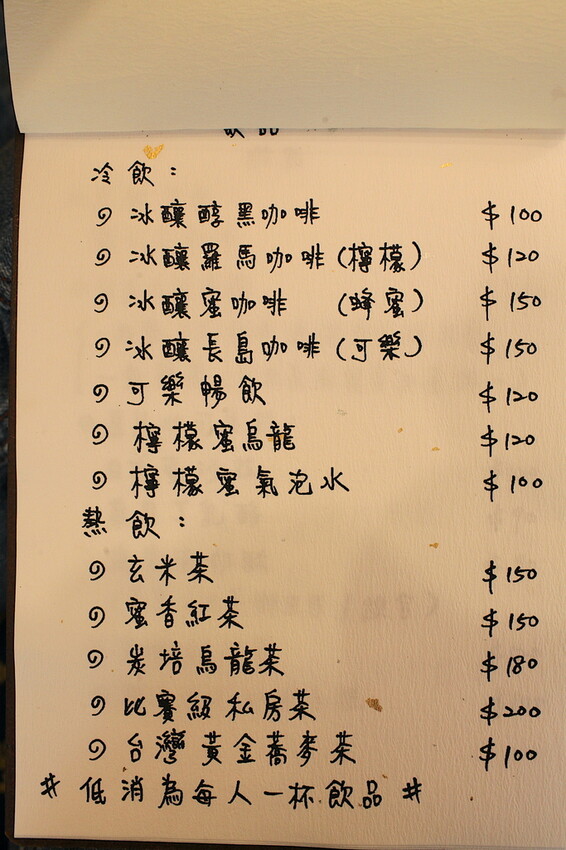 飲品
冷飲：
冰釀醇黑咖啡 $100
冰釀羅馬咖啡(檸檬) $120
冰釀蜜咖啡 (蜂蜜) $150
冰釀長島咖啡(可樂) $150
可樂暢飲 $120
檸檬蜜烏龍 $120
檸檬蜜氣泡水 $100
熱飲：
玄米茶 $150
蜜香紅茶 $150
炭培烏龍茶 $180
比賽級私房茶 $200
台灣黃金蕎麥茶 $100
# 低消為每人一杯飲品 #